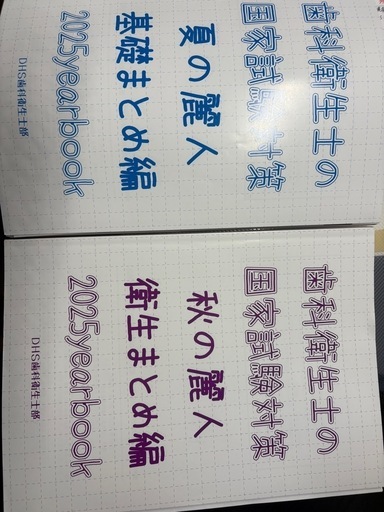 歯科衛生士の
国家試験対策
夏の麗人
基礎まとめ編
2025yearbook
DHS歯科衛生士部
歯科衛生士の
国家試験対策
秋の麗人
衛生まとめ編
2025yearbook
DHS歯科衛生士部